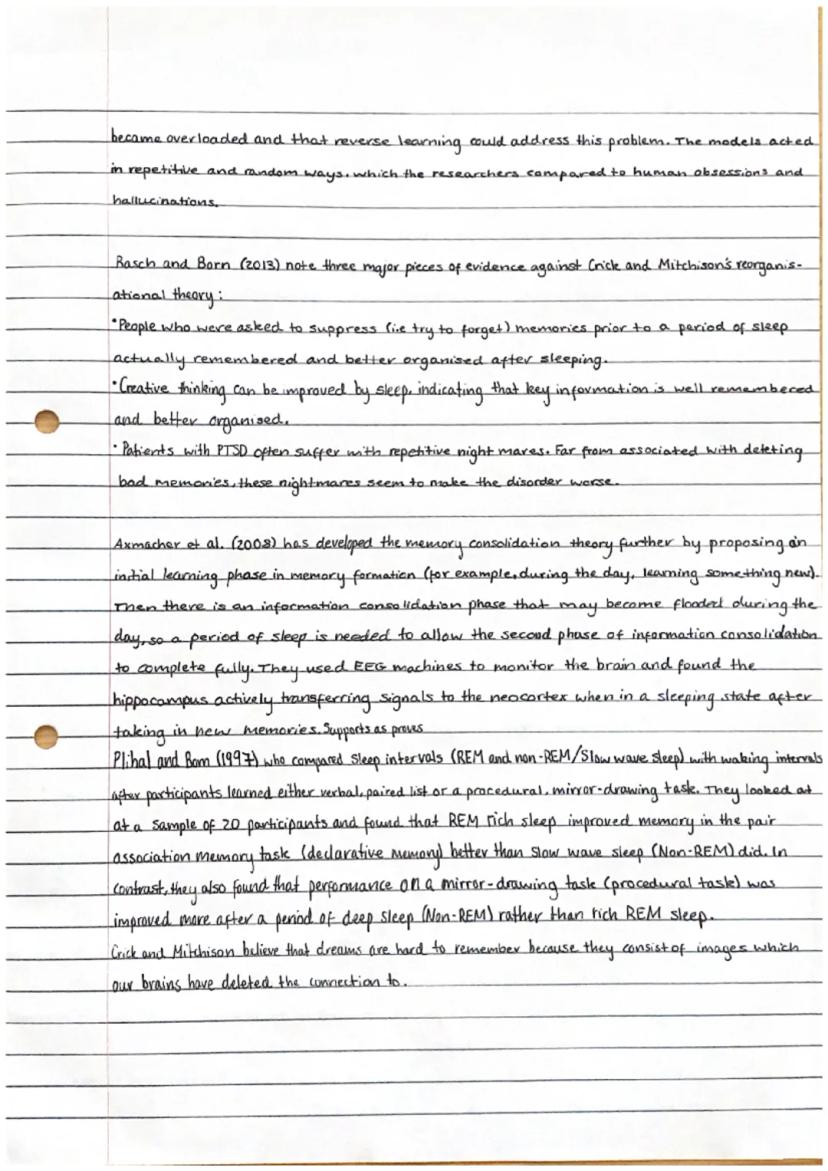 became overloaded and that reverse learning could address this problem. The models acted
in repetitive and random ways, which the researchers compared to human obsessions and
hallucinations.
Rasch and Born (2013) note three major pieces of evidence against Crick and Mitchison's reorganis-
ational theory:
•People who were asked to suppress (i.e try to forget) memories prior to a period of sleep
actually remembered and better organised after sleeping.
•Creative thinking can be improved by sleep, indicating that key information is well remembered
and better organised.
•Patients with PTSD often suffer with repetitive night mares. Far from associated with deleting
bad memories, these nightmares seem to make the disorder worse.
Axmacher et al. (2008) has developed the memory consolidation theory further by proposing an
initial learning phase in memory formation (for example, during the day, learning something new).
Then there is an information consolidation phase that may become flooded during the
day, so a period of sleep is needed to allow the second phase of information consolidation
to complete fully. They used EEG machines to monitor the brain and found the
hippocampus actively transferring signals to the neocortex when in a sleeping state after
taking in new memories. Supports as proves
Plihal and Born (1997) who compared sleep intervals (REM and non-REM/Slow wave sleep) with waking intervals
after participants learned either verbal, paired list or a procedural, mirror-drawing task. They looked at
at a sample of 20 participants and found that REM rich sleep improved memory in the pair
association memory task (declarative memory) better than slow wave sleep (Non-REM) did. In
contrast, they also found that performance on a mirror-drawing task (procedural task) was
improved more after a period of deep sleep (Non-REM) rather than rich REM sleep.
Crick and Mitchison believe that dreams are hard to remember because they consist of images which
our brains have deleted the connection to.